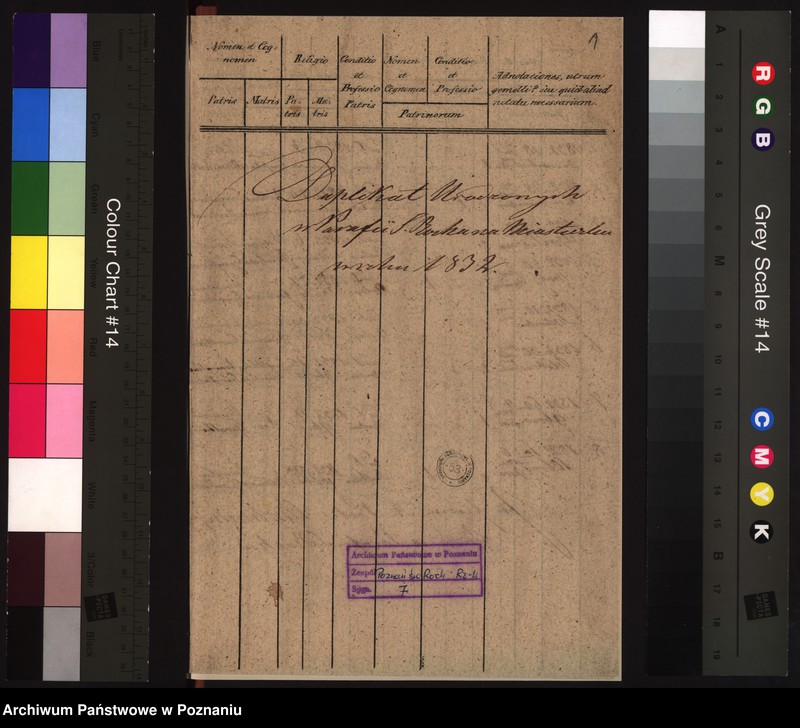 1
Nomen et Cog-
nomen
Religio
Conditio
et
Professio
Patris
Nomen
et
Cognomen
Conditio
et
Professio
Adnotationes, utrum
gemelli? seu quid aliud
notatu necessarium.
Patris
Matris
Pa-
tris
Ma-
tris
Patrinorum
Duplikat Urodzonych
w Parafii S. Rocha na Miasteczku
w roku 1832.
53
Archiwum Państwowe w Poznaniu
Zespół Poznań św. Roch Rz-k
Sygn. 7
Colour Chart #14
Blue
Cyan
Green
Yellow
Red
Magenta
White
3/Color
Black
Grey Scale #14
R
G
B
C
M
Y
K
A
1
2
3
4
5
6
M
8
9
10
11
12
13
14
15
B
17
18
19
DANES
PICTA
Archiwum Państwowe w Poznaniu